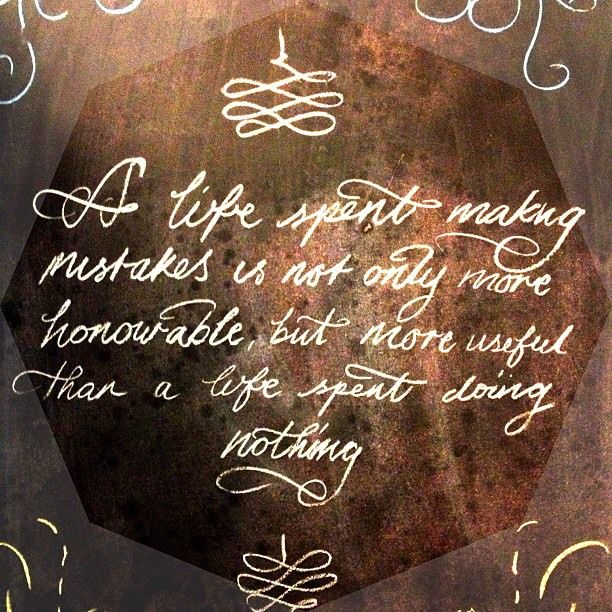 A life spent making
mistakes is not only more
honourable, but more useful
than a life spent doing
nothing